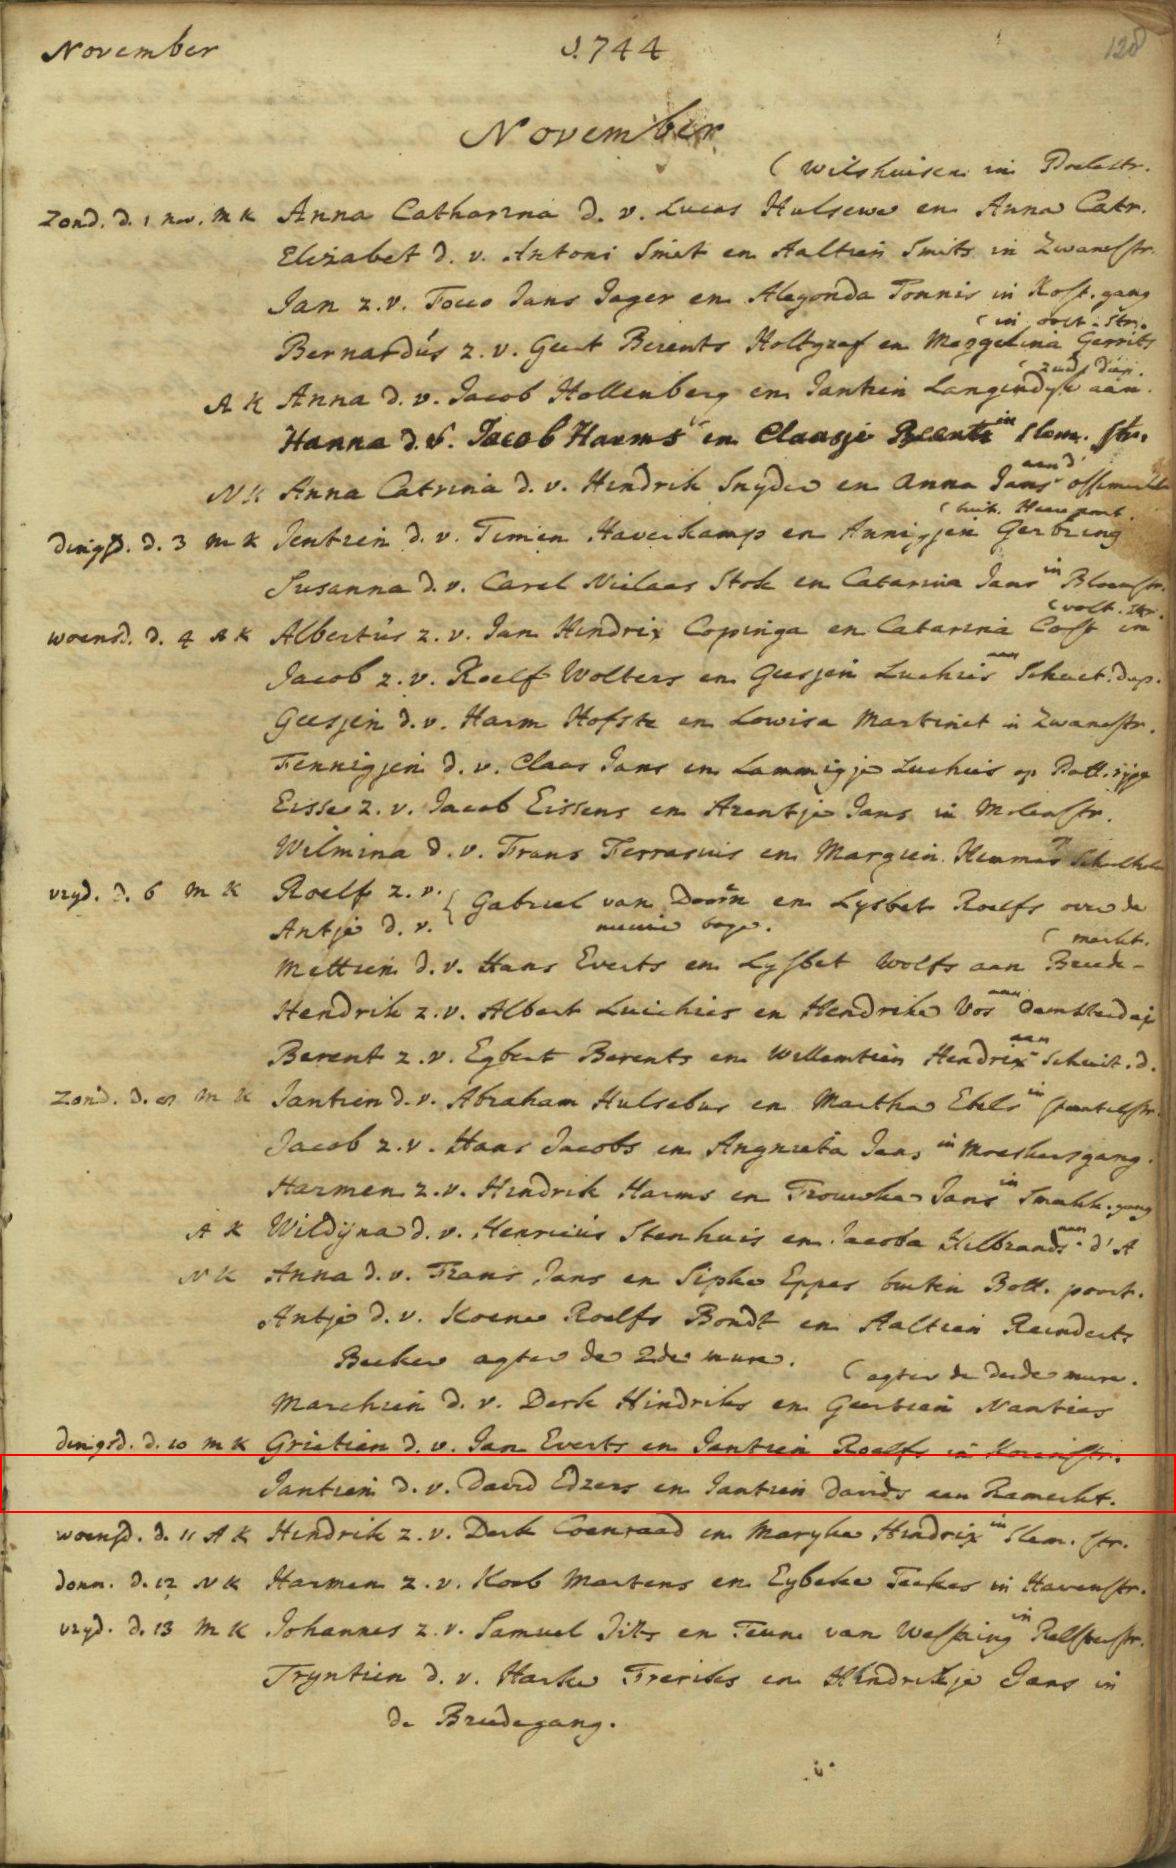 November 1744 128
November
( Wilshuisen in Poelestr.
Zond. d. 1 nov. M K Anna Catharina d. v. Lucas Hulsewe en Anna Catr.
Elizabet d. v. Antoni Smit en Aaltien Smits in Zwanestr.
Jan z. v. Focco Jans Jager en Alegonda Tonnis in Kost. gang
( in oost. str.
Bernardús z. v. Geert Berents Holtgraf en Margelina Gerrits
( zuid. diep.
A K Anna d. v. Jacob Hollenberg en Jantien Langendyk aan
Hanna d. v. Jacob Harms en Claasje Berents in Slem. str.
N K Anna Catrina d. v. Hendrik Snyder en Anna Jans aan d' ossemarkt
( buit. Heerepoort.
dingsd. d. 3 M K Jentien d. v. Timen Haverkamp en Annigjen Gerbring
Susanna d. v. Carel Niclaas Stok en Catarina Jans in Bloemstr.
( volt. str.
woensd. d. 4 A K Albertús z. v. Jan Hindrix Copinga en Catarina Cost in
Jacob z. v. Roelf Wolters en Geesjen Luchies aan Schuit. dep.
Geesjen d. v. Harm Hofste en Lowisa Martinet in Zwanestr.
Fennigjen d. v. Claas Jans en Lammigje Luchies op Bott. rijge
Eisse z. v. Jacob Eissens en Arentje Jans in Molenstr.
Wilmina d. v. Frans Ferrasuis en Margien Hermes
vryd. d. 6 M K Roelf z. v. { Gabriel van Doorn en Lysbet Roelfs over de
Antje d. v. nieuwe boge.
( merkt.
Mettien d. v. Hans Everts en Lysbet Wolfs aan Breede-
Hendrik z. v. Albert Luichies en Hendrika Vos aan damsterdiep
Berent z. v. Egbert Berents en Willemtien Hendrix aan Schuit. d.
Zond. d. 8 M K Jantien d. v. Abraham Hulsebus en Martha Ebels in
Jacob z. v. Haas Jacobs en Angnieta Jans in Moeskersgang.
Harmen z. v. Hindrik Harms en Trouwke Jans in Smakk. gang
A K Wildijna d. v. Henricús Stenhuis en Jacoba Hilbrands aan d' A
N K Anna d. v. Frans Jans en Sipke Eppes buiten Bott. poort.
Antje d. v. Koene Roelfs Bondt en Aaltien Reinderts
Beeker agter de 2de mure.
( agter de derde mure.
Marchien d. v. Derk Hindriks en Geertien Nanties
dingsd. d. 10 M K Grietien d. v. Jan Everts en Jantien Roelfs in Kreeistr.
Jantien d. v. David Edzers en Jantien Davids aan Ramerkt.
woensd. d. 11 A K Hindrik z. v. Derk Coenraad en Maryke Hindrix in Slem. str.
donn. d. 12 N K Harmen z. v. Koob Martens en Eybeke Teekes in Havenstr.
vryd. d. 13 M K Johannes z. v. Samuel Jits en Teune van Wessing in
Tryntien d. v. Harke Freriks en Hindrikje Jans in
de Breedegang.